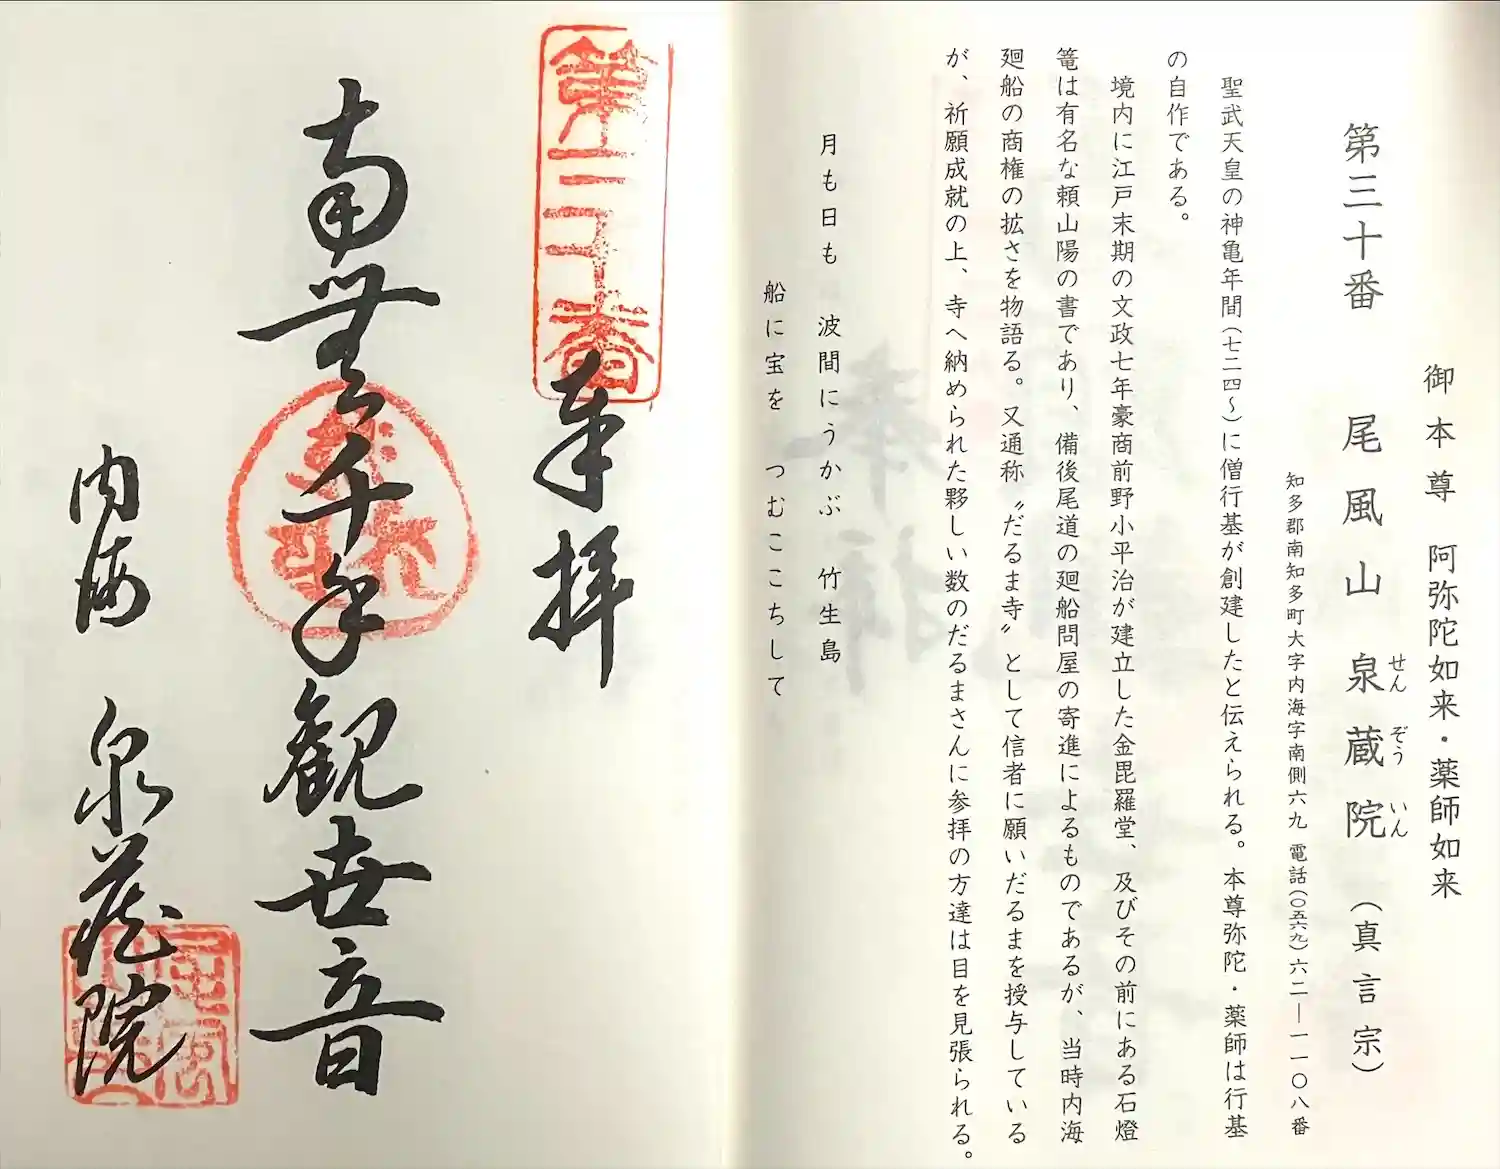 御本尊 阿弥陀如来・薬師如来
第三十番 尾風山 泉蔵院 (真言宗)
せん ぞう いん
知多郡南知多町大字内海字南側六九 電話(〇五六九)六二―一一〇八番
聖武天皇の神亀年間(七二四〜)に僧行基が創建したと伝えられる。本尊弥陀・薬師は行基
の自作である。
境内に江戸末期の文政七年豪商前野小平治が建立した金毘羅堂、及びその前にある石燈
篭は有名な頼山陽の書であり、備後尾道の廻船問屋の寄進によるものであるが、当時内海
廻船の商権の拡さを物語る。又通称〝だるま寺〟として信者に願いだるまを授与している
が、祈願成就の上、寺へ納められた夥しい数のだるまさんに参拝の方達は目を見張られる。
月も日も 波間にうかぶ 竹生島
船に宝を つむここちして
第三十番
奉拝
南無千手観世音
内海 泉蔵院